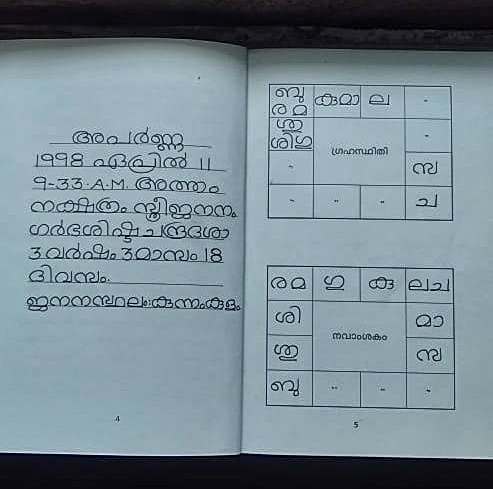 അപർണ്ണ
1998 ഏപ്രിൽ 11
9-33.A.M. അത്തം
നക്ഷത്രം സ്ത്രീജനനം
ഗർഭശിഷ്ട ചന്ദ്രദശാ
3 വർഷം 3 മാസം 18
ദിവസം.
ജനനസ്ഥലം:കുന്നംകുളം
4
ബു കുമാ ല -
ര മ
ശു -
ശിഗു ഗ്രഹസ്ഥിതി
- സ
- - - ച
ര മ ഗു കു ലച
ശി മാ
നവാംശകം
ശു സ
ബു - - -
5